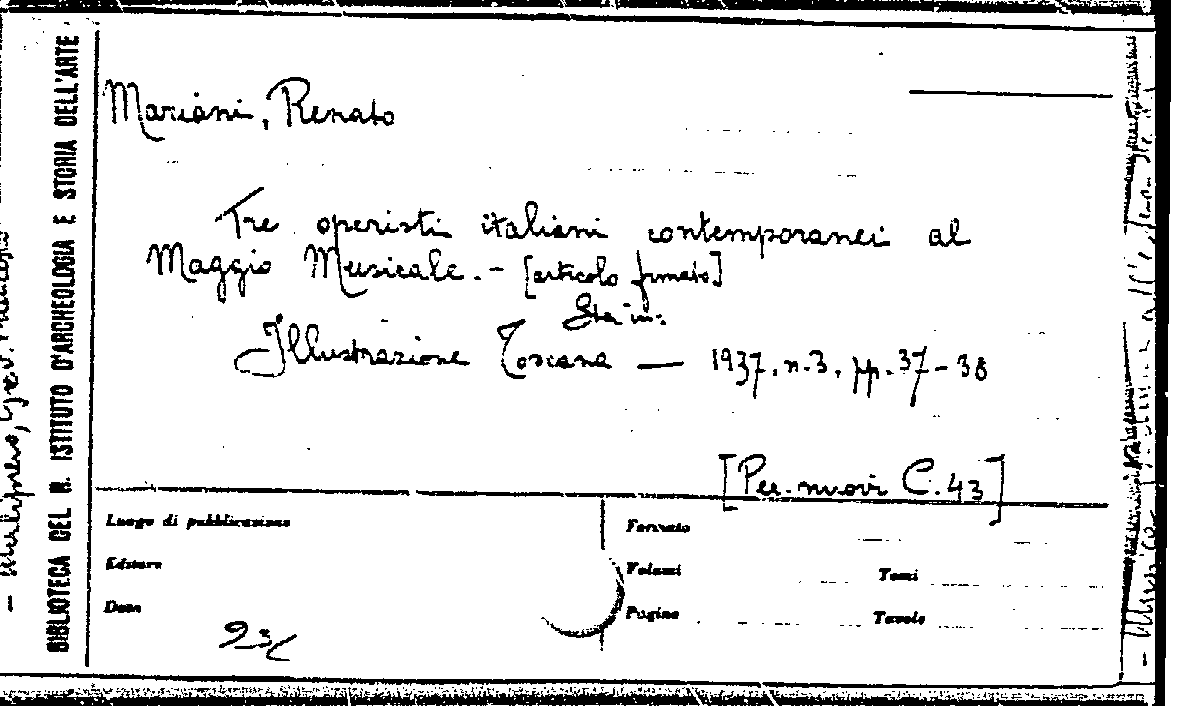 BIBLIOTECA DEL R. ISTITUTO D'ARCHEOLOGIA E STORIA DELL'ARTE
Mariani, Renato
Tre operisti italiani contemporanei al
Maggio Musicale. - [articolo firmato]
Sta in:
Illustrazione Toscana — 1937. n. 3. pp. 37-38
[Per. nuovi C. 43]
Luogo di pubblicazione
Editore
Data
Formato
Volumi Tomi
Pagine Tavole